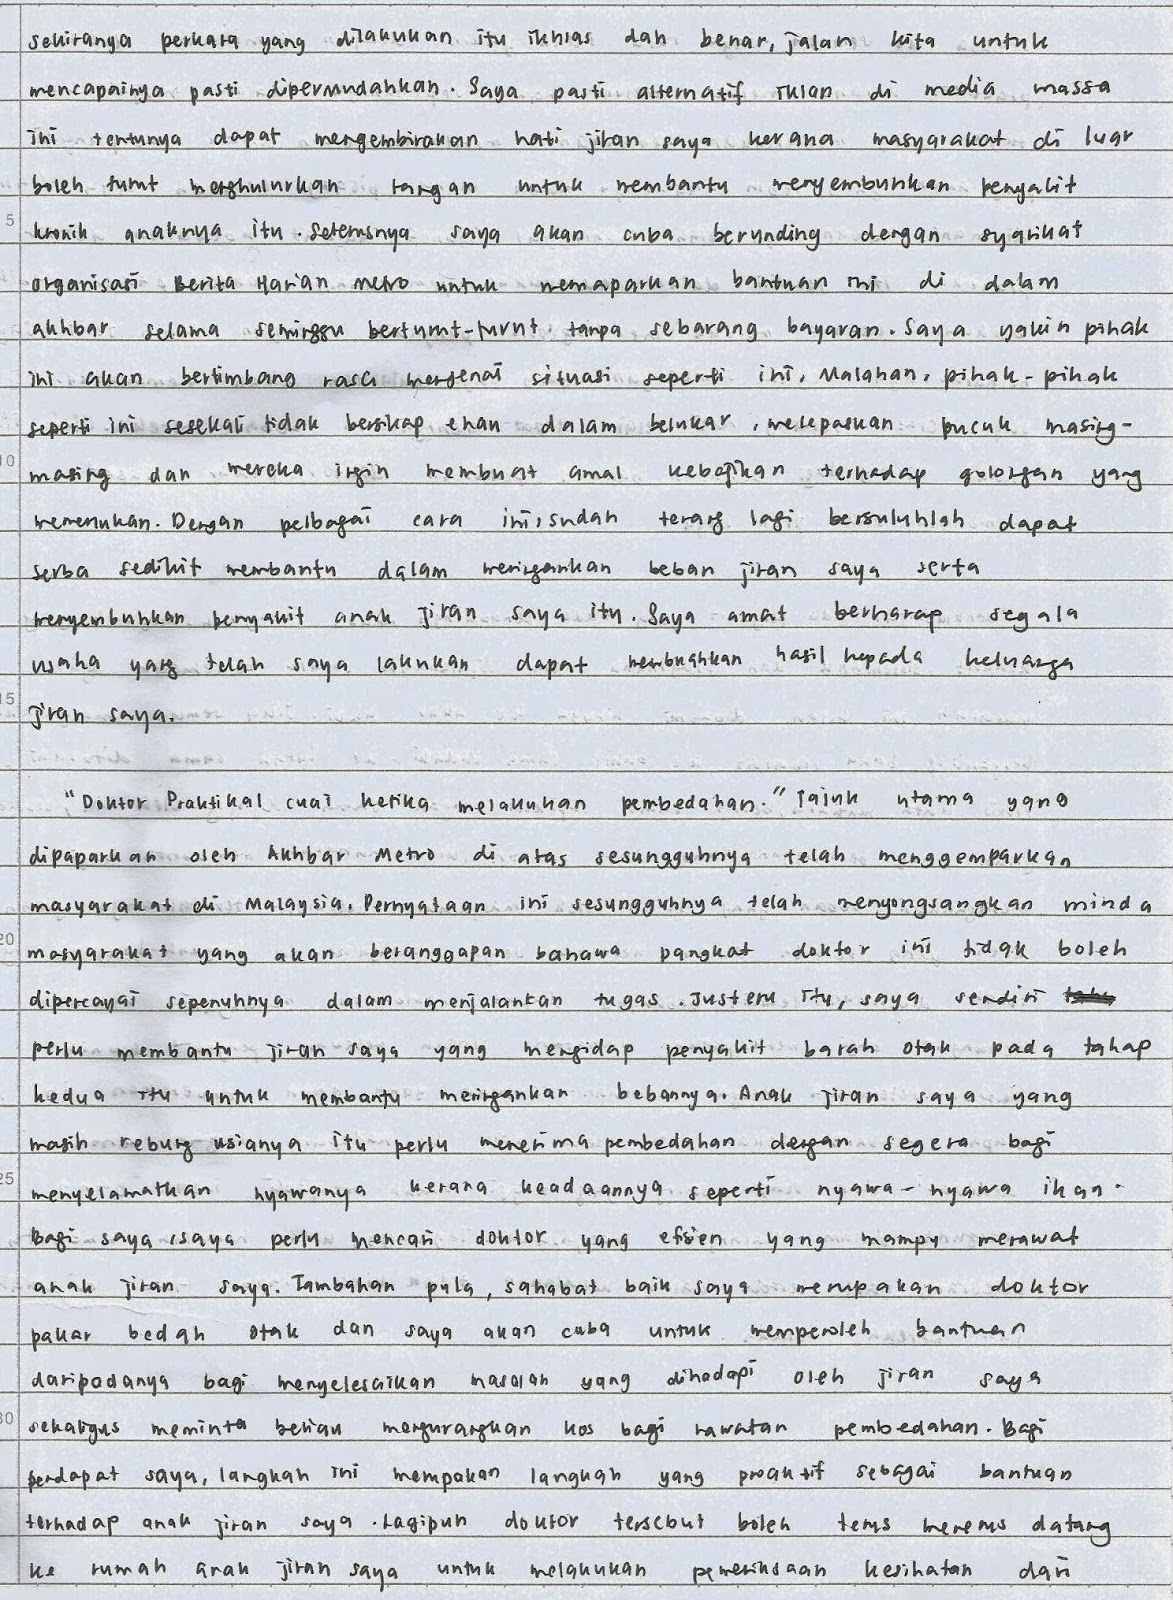 sekiranya perkara yang dilakukan itu ikhlas dan benar, jalan kita untuk
mencapainya pasti dipermudahkan. Saya pasti alternatif iklan di media massa
ini tentunya dapat mengembirakan hati jiran saya kerana masyarakat di luar
boleh turut menghulurkan tangan untuk membantu menyembuhkan penyakit
5 kronik anaknya itu. Seterusnya saya akan cuba berunding dengan syarikat
organisasi Berita Harian Metro untuk memaparkan bantuan ini di dalam
akhbar selama seminggu berturut-turut tanpa sebarang bayaran. Saya yakin pihak
ini akan bertimbang rasa mengenai situasi seperti ini. Malahan, pihak-pihak
seperti ini sesekali tidak bersikap enau dalam belukar, melepaskan pucuk masing-
10 masing dan mereka ingin membuat amal kebajikan terhadap golongan yang
memerlukan. Dengan pelbagai cara ini, sudah terang lagi bersuluhlah dapat
serba sedikit membantu dalam meringankan beban jiran saya serta
menyembuhkan penyakit anak jiran saya itu. Saya amat berharap segala
usaha yang telah saya lakukan dapat membuahkan hasil kepada keluarga
15 jiran saya.
"Doktor Praktikal cuai ketika melakukan pembedahan." Tajuk utama yang
dipaparkan oleh Akhbar Metro di atas sesungguhnya telah menggemparkan
masyarakat di Malaysia. Pernyataan ini sesungguhnya telah menyongsangkan minda
20 masyarakat yang akan beranggapan bahawa pangkat doktor ini tidak boleh
dipercayai sepenuhnya dalam menjalankan tugas. Justeru itu, saya sendiri
perlu membantu jiran saya yang mengidap penyakit barah otak pada tahap
kedua itu untuk membantu meringankan bebannya. Anak jiran saya yang
masih rebung usianya itu perlu menerima pembedahan dengan segera bagi
25 menyelamatkan nyawanya kerana keadaannya seperti nyawa-nyawa ikan.
Bagi saya, saya perlu mencari doktor yang efisien yang mampu merawat
anak jiran saya. Tambahan pula, sahabat baik saya merupakan doktor
pakar bedah otak dan saya akan cuba untuk memperoleh bantuan
daripadanya bagi menyelesaikan masalah yang dihadapi oleh jiran saya
30 sekaligus meminta beliau mengurangkan kos bagi rawatan pembedahan. Bagi
pendapat saya, langkah ini merupakan langkah yang proaktif sebagai bantuan
terhadap anak jiran saya. Lagipun doktor tersebut boleh terus menerus datang
ke rumah anak jiran saya untuk melakukan pemeriksaan kesihatan dari